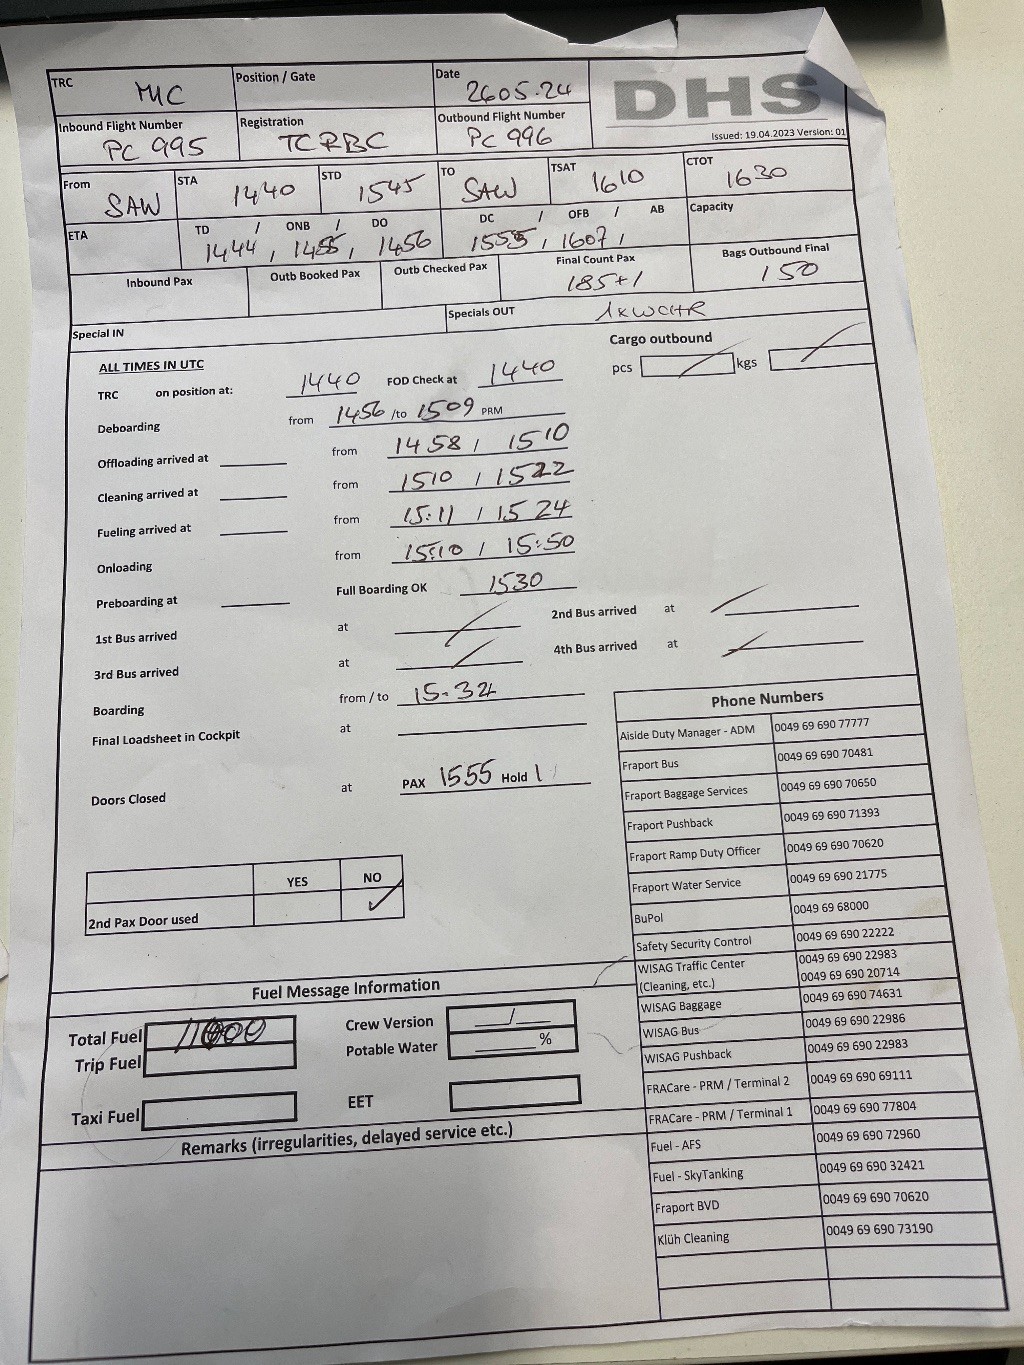 TRC MC Position / Gate Date 2605.24 DHS
Issued: 19.04.2023 Version: 01
Inbound Flight Number PC 995 Registration TCRBC Outbound Flight Number PC 996
From SAW STA 1440 STD 1545 TO SAW TSAT 1610 CTOT 1630
ETA TD / ONB / DO 1444 , 1455 , 1456 DC / OFB / AB 1555 , 1607 , Capacity
Inbound Pax Outb Booked Pax Outb Checked Pax Final Count Pax 185+1 Bags Outbound Final 150
Special IN Specials OUT 1xWCHR
ALL TIMES IN UTC Cargo outbound
TRC on position at: 1440 FOD Check at 1440 pcs kgs
Deboarding from 1456 /to 1509 PRM
Offloading arrived at from 1458 / 1510
Cleaning arrived at from 1510 / 1522
Fueling arrived at from 15:11 / 1524
Onloading from 15:10 / 15:50
Preboarding at Full Boarding OK 1530
1st Bus arrived at 2nd Bus arrived at
3rd Bus arrived at 4th Bus arrived at
Boarding from / to 15-32
Final Loadsheet in Cockpit at
Doors Closed at PAX 1555 Hold
YES NO
2nd Pax Door used ✓
Phone Numbers
Aiside Duty Manager - ADM 0049 69 690 77777
Fraport Bus 0049 69 690 70481
Fraport Baggage Services 0049 69 690 70650
Fraport Pushback 0049 69 690 71393
Fraport Ramp Duty Officer 0049 69 690 70620
Fraport Water Service 0049 69 690 21775
BuPol 0049 69 68000
Safety Security Control 0049 69 690 22222
WISAG Traffic Center 0049 69 690 22983
(Cleaning, etc.) 0049 69 690 20714
WISAG Baggage 0049 69 690 74631
WISAG Bus 0049 69 690 22986
WISAG Pushback 0049 69 690 22983
FRACare - PRM / Terminal 2 0049 69 690 69111
FRACare - PRM / Terminal 1 0049 69 690 77804
Fuel - AFS 0049 69 690 72960
Fuel - SkyTanking 0049 69 690 32421
Fraport BVD 0049 69 690 70620
Klüh Cleaning 0049 69 690 73190
Fuel Message Information
Total Fuel 11000 Crew Version /
Trip Fuel Potable Water %
Taxi Fuel EET
Remarks (irregularities, delayed service etc.)